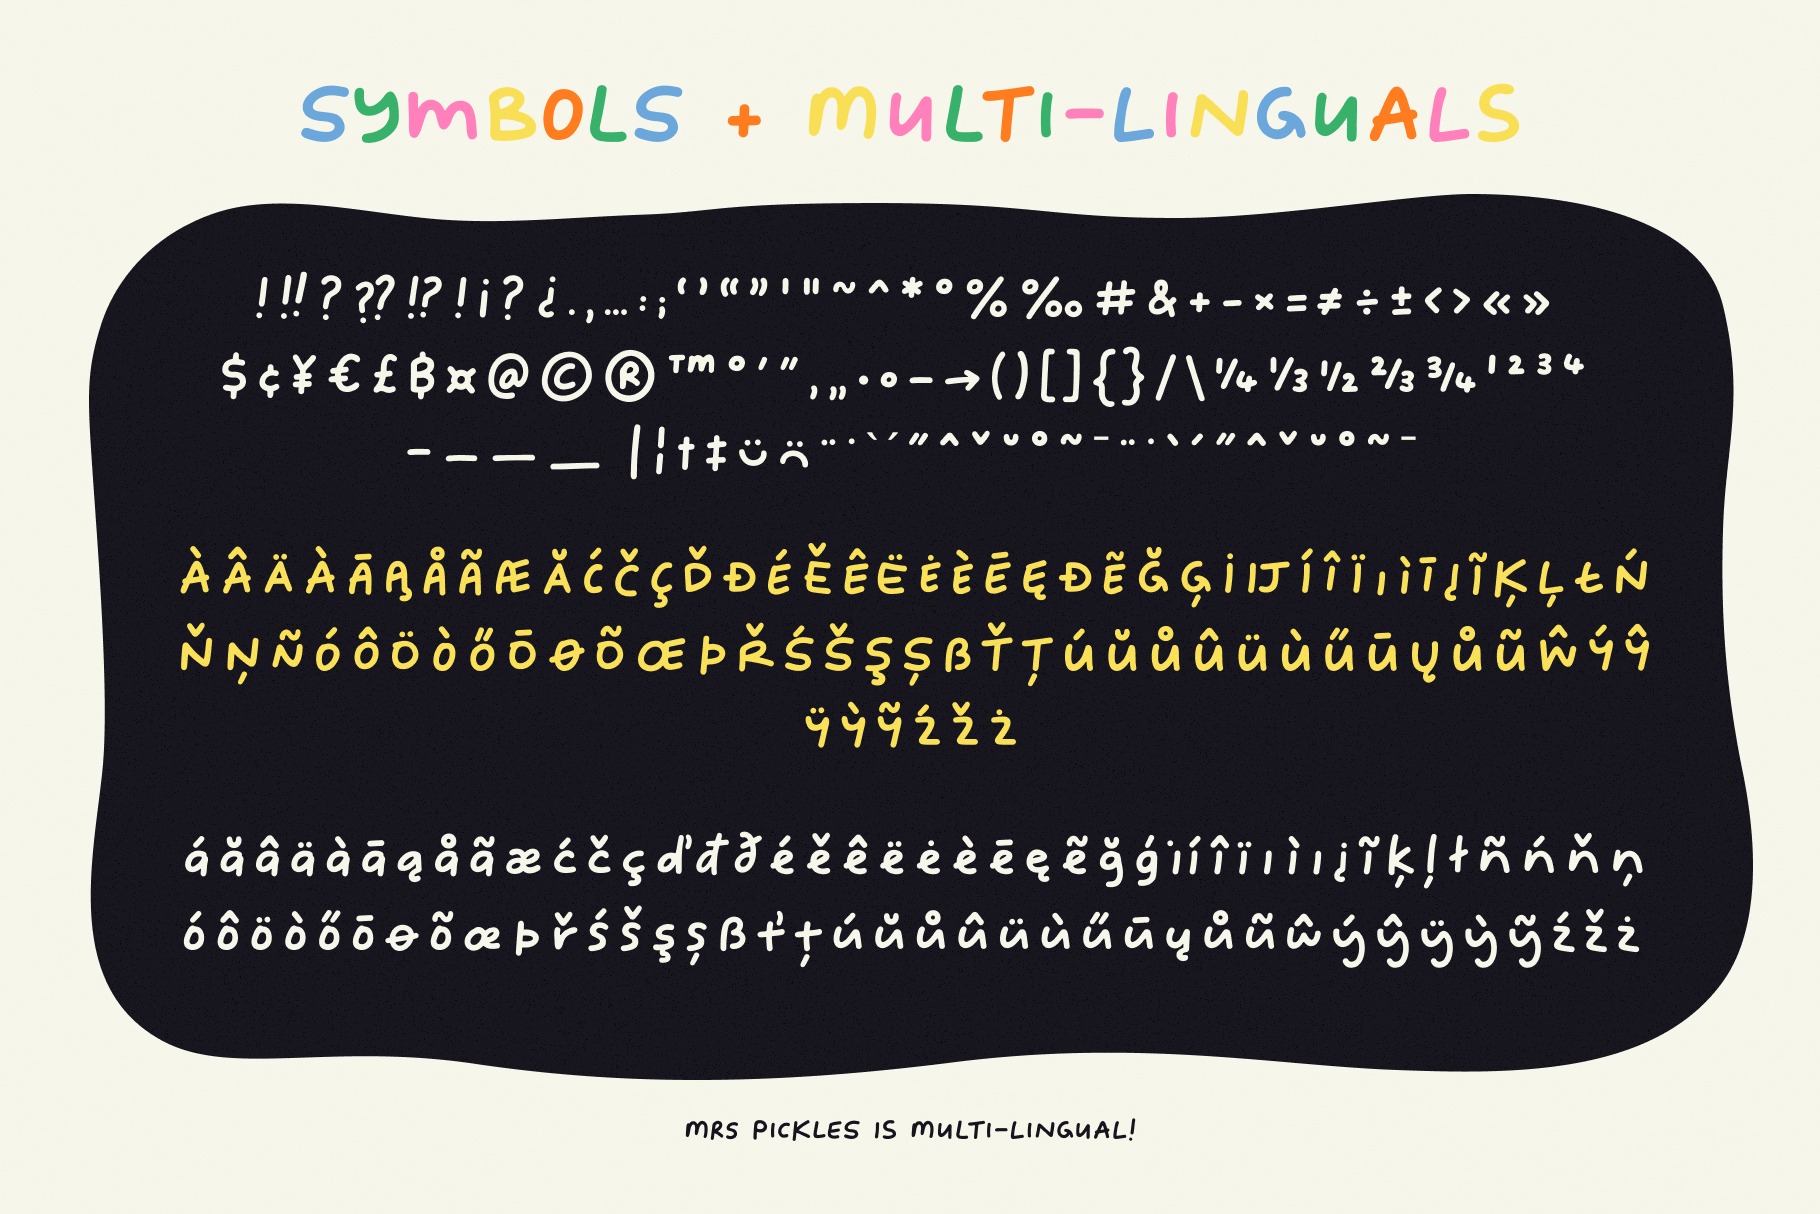 SYMBOLS + MULTI-LINGUALS
! !! ? ?? !? ! ¡ ? ¿ . , … : ; ‘ ’ “ ” ' " ~ ^ * ° % ‰ # & + - × = ≠ ÷ ± < > « »
$ ¢ ¥ € £ ₿ ¤ @ © ® ™ ° ′ ″ ‚ „ · ∘ − → ( ) [ ] { } / \ ¼ ⅓ ½ ⅔ ¾ ¹ ² ³ ⁴
- – — _ | ¦ † ‡ ¨ ˙ ` ´ ˝ ^ ˇ ˘ ˚ ~ ¯ ¨ ˙ ` ´ ˝ ^ ˇ ˘ ˚ ~ ¯
À Â Ä À Ā Ą Å Ã Æ Ă Ć Č Ç Ď Đ É Ě Ê Ë Ė È Ē Ę Đ Ẽ Ğ Ģ İ IJ Í Î Ï ı Ì Ī Į Ĩ Ķ Ļ Ł Ń
Ň Ņ Ñ Ó Ô Ö Ò Ő Ō Ø Õ Œ Þ Ř Ś Š Ş Ș ß Ť Ț Ú Ŭ Ů Û Ü Ù Ű Ū Ų Ů Ũ Ŵ Ý Ŷ
Ÿ Ỳ Ỹ Ź Ž Ż
á ă â ä à ā ą å ã æ ć č ç ď đ ð é ě ê ë ė è ē ę ẽ ğ ǵ i í î ï ı ì ı į ĩ ķ ļ ł ñ ń ň ņ
ó ô ö ò ő ō ø õ œ þ ř ś š ş ș ß ť ț ú ŭ ů û ü ù ű ū ų ů ũ ŵ ý ŷ ÿ ỳ ỹ ź ž ż
MRS PICKLES IS MULTI-LINGUAL!